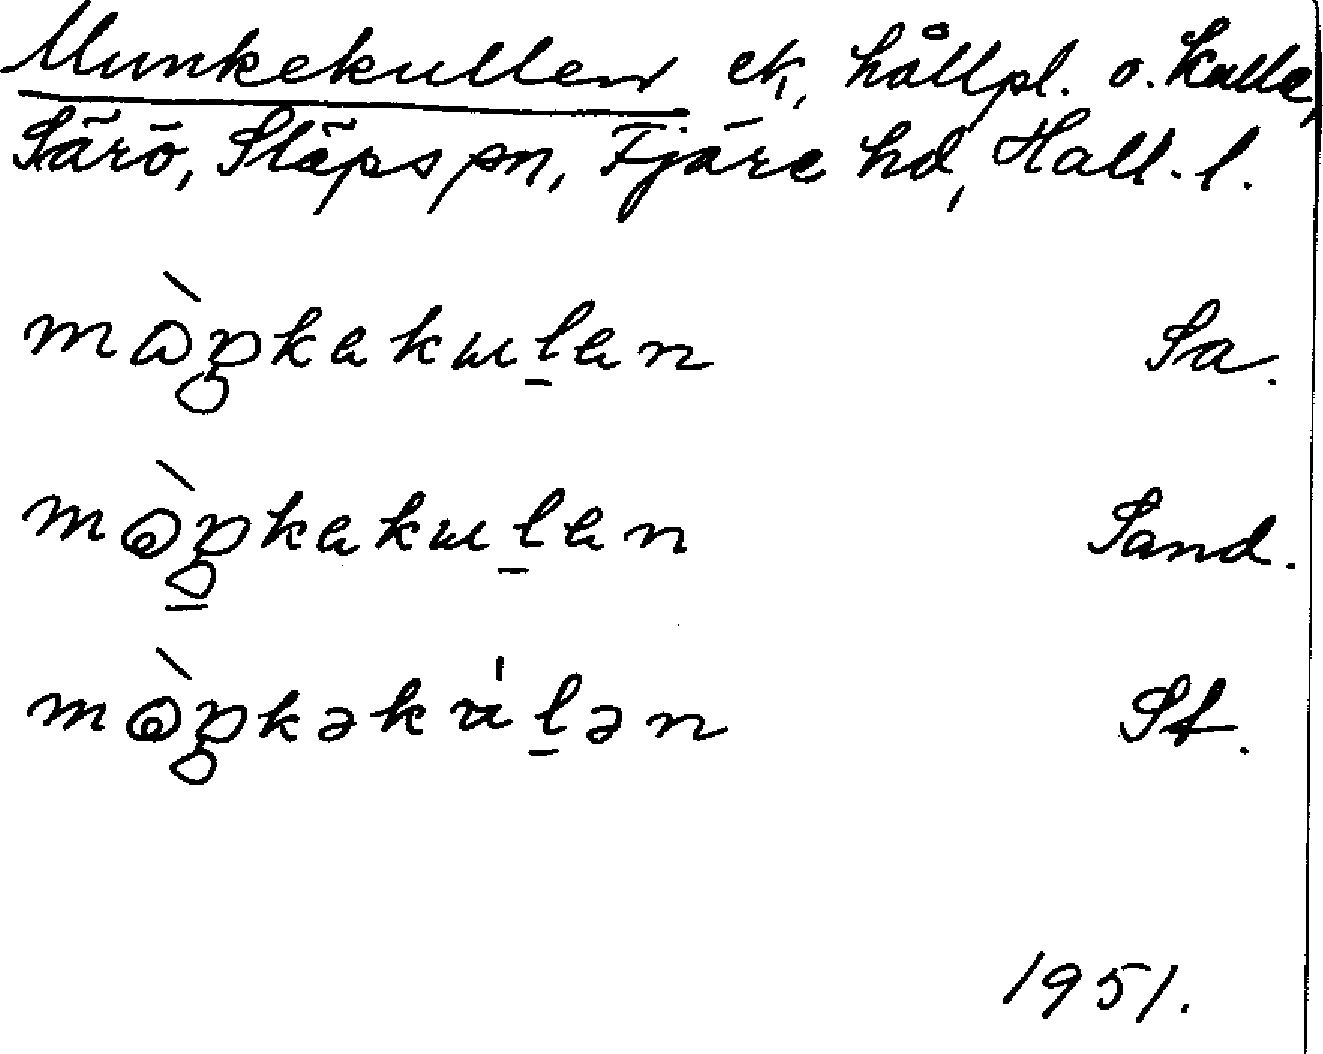 Munkekullen ek, hållpl. o. kulle,
Särö, Släps sn, Fjäre hd, Hall. l.
mòŋkakulan Sa.
mòŋkakulan Sand.
mòŋkəkulən St.
1951.